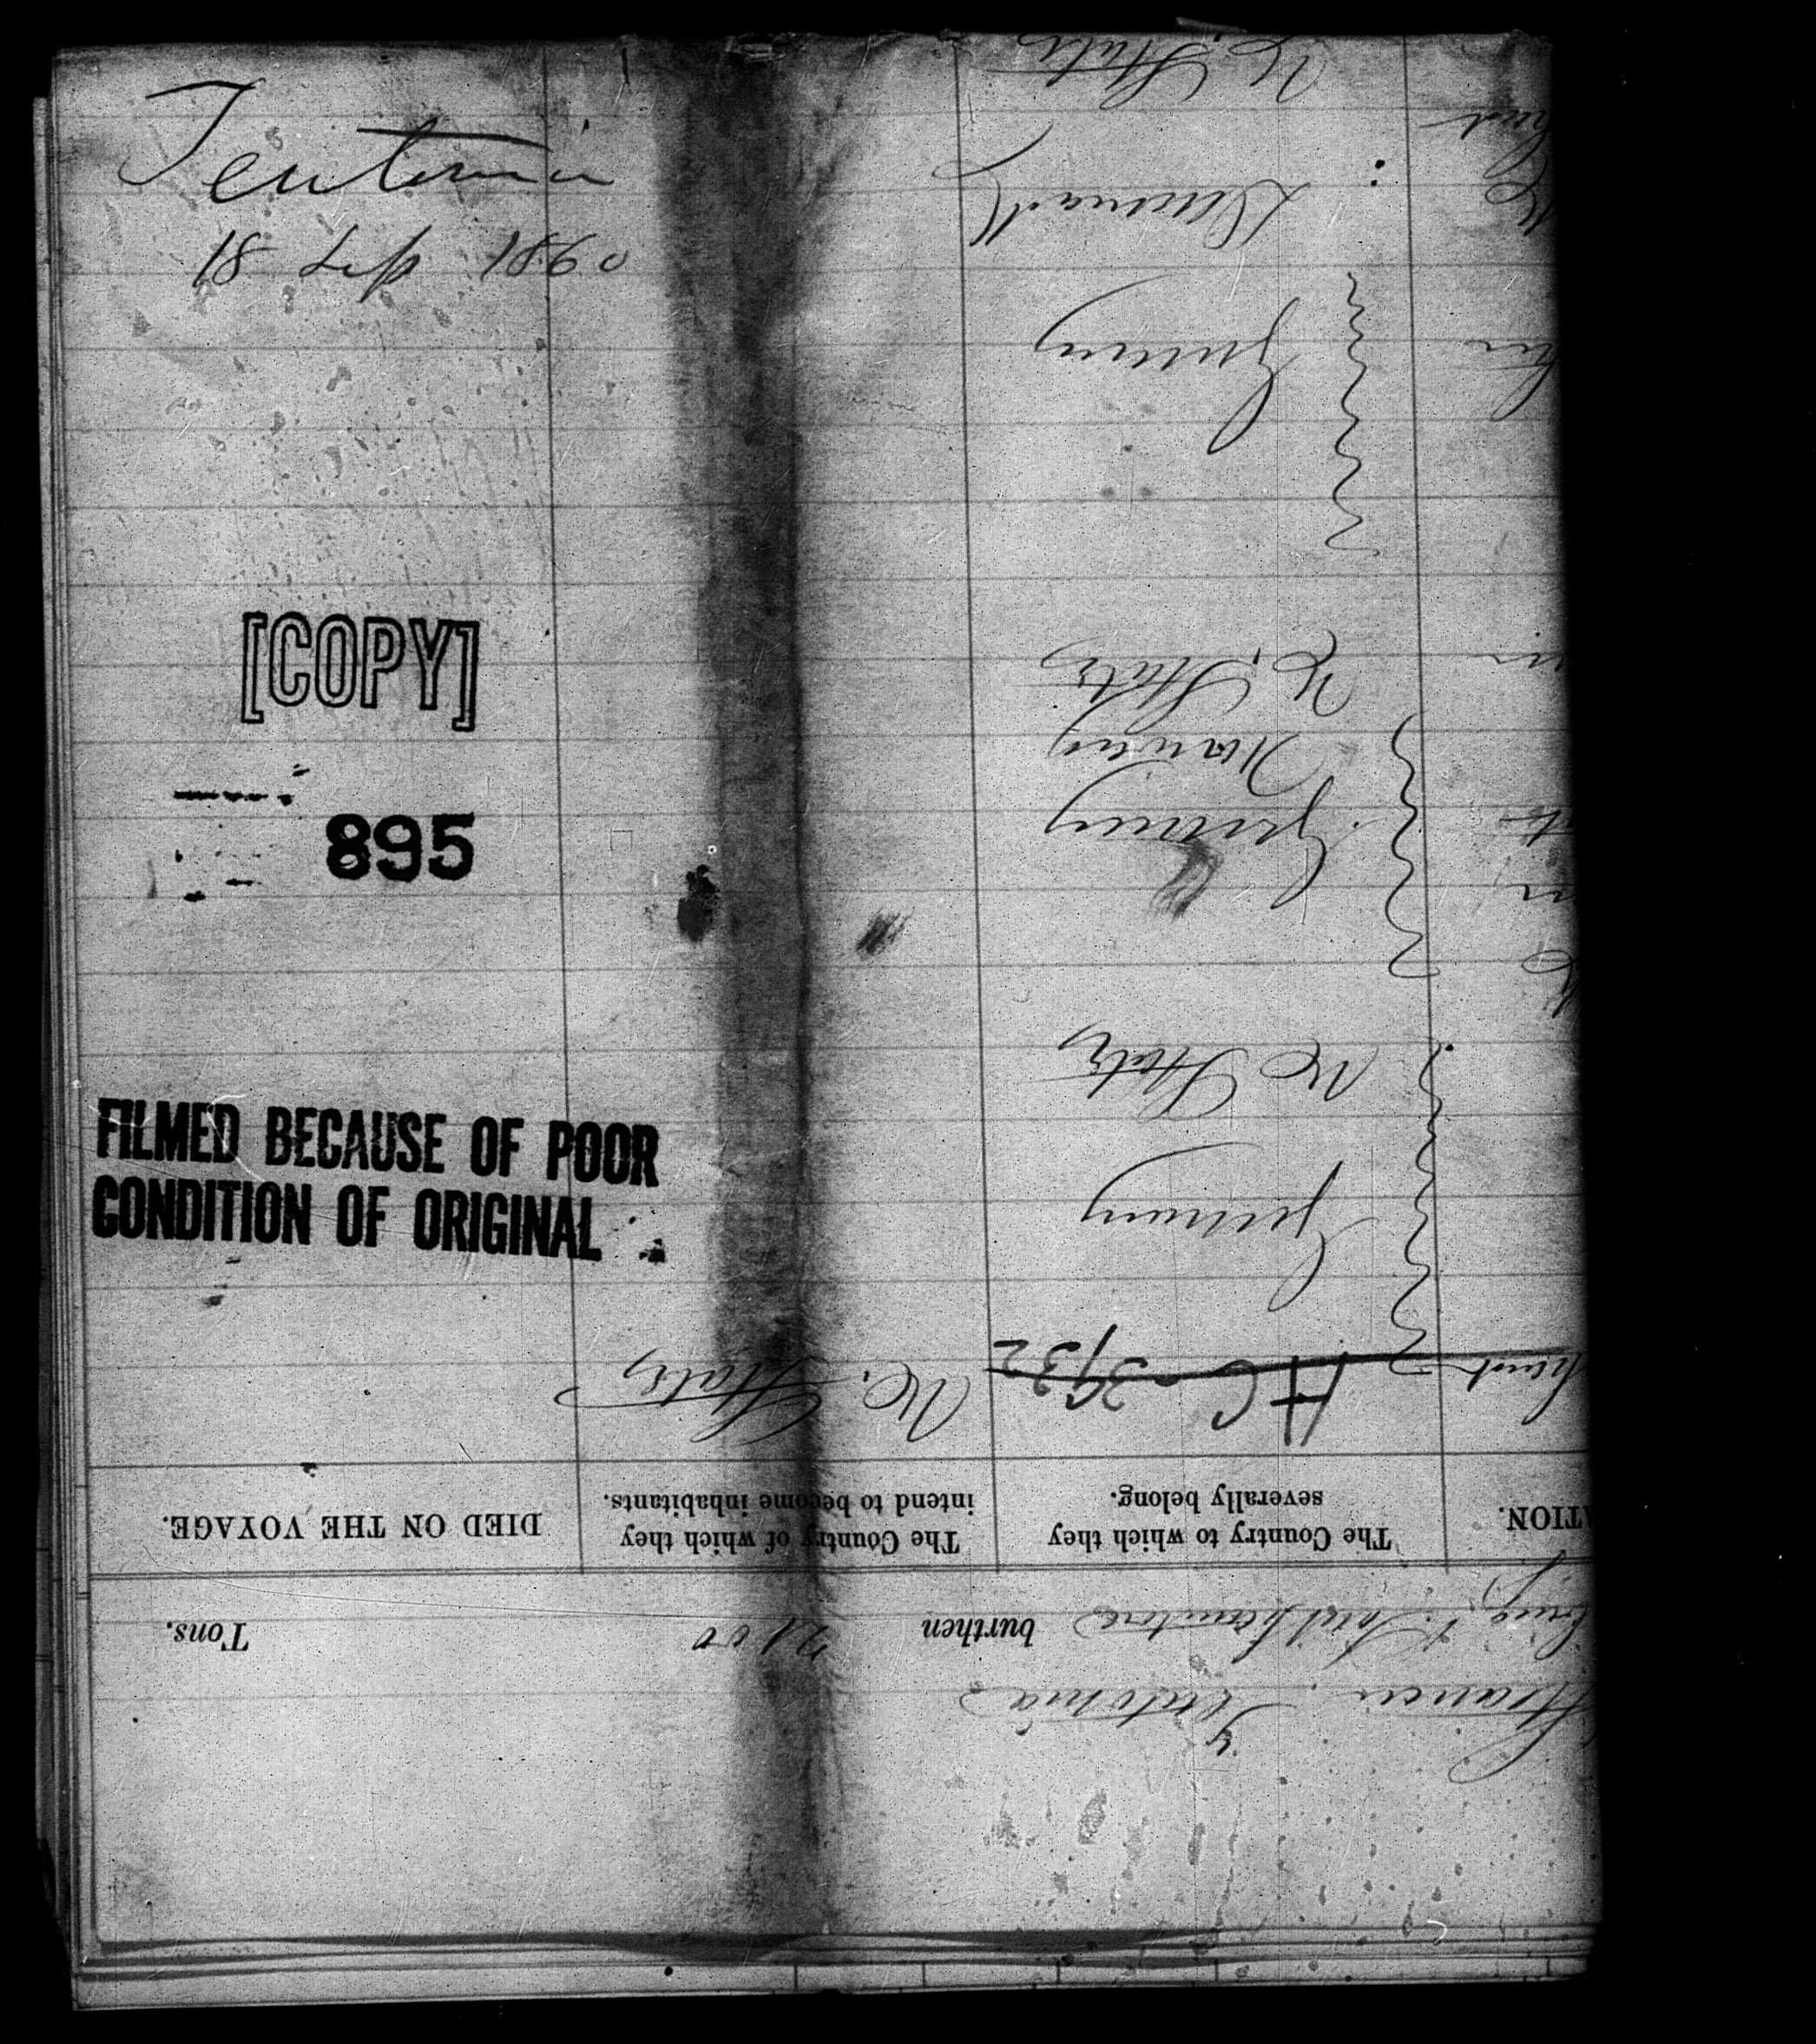 Teutonia
18 Sept 1860
[COPY]
895
FILMED BECAUSE OF POOR
CONDITION OF ORIGINAL
Steamer Teutonia
burthen 2100 Tons.
ATION.
The Country to which they
severally belong.
The Country of which they
intend to become inhabitants.
DIED ON THE VOYAGE.
HC 3932
U. States
Germany
U States
Germany
Norway
U. States
Germany
Denmark
U. States